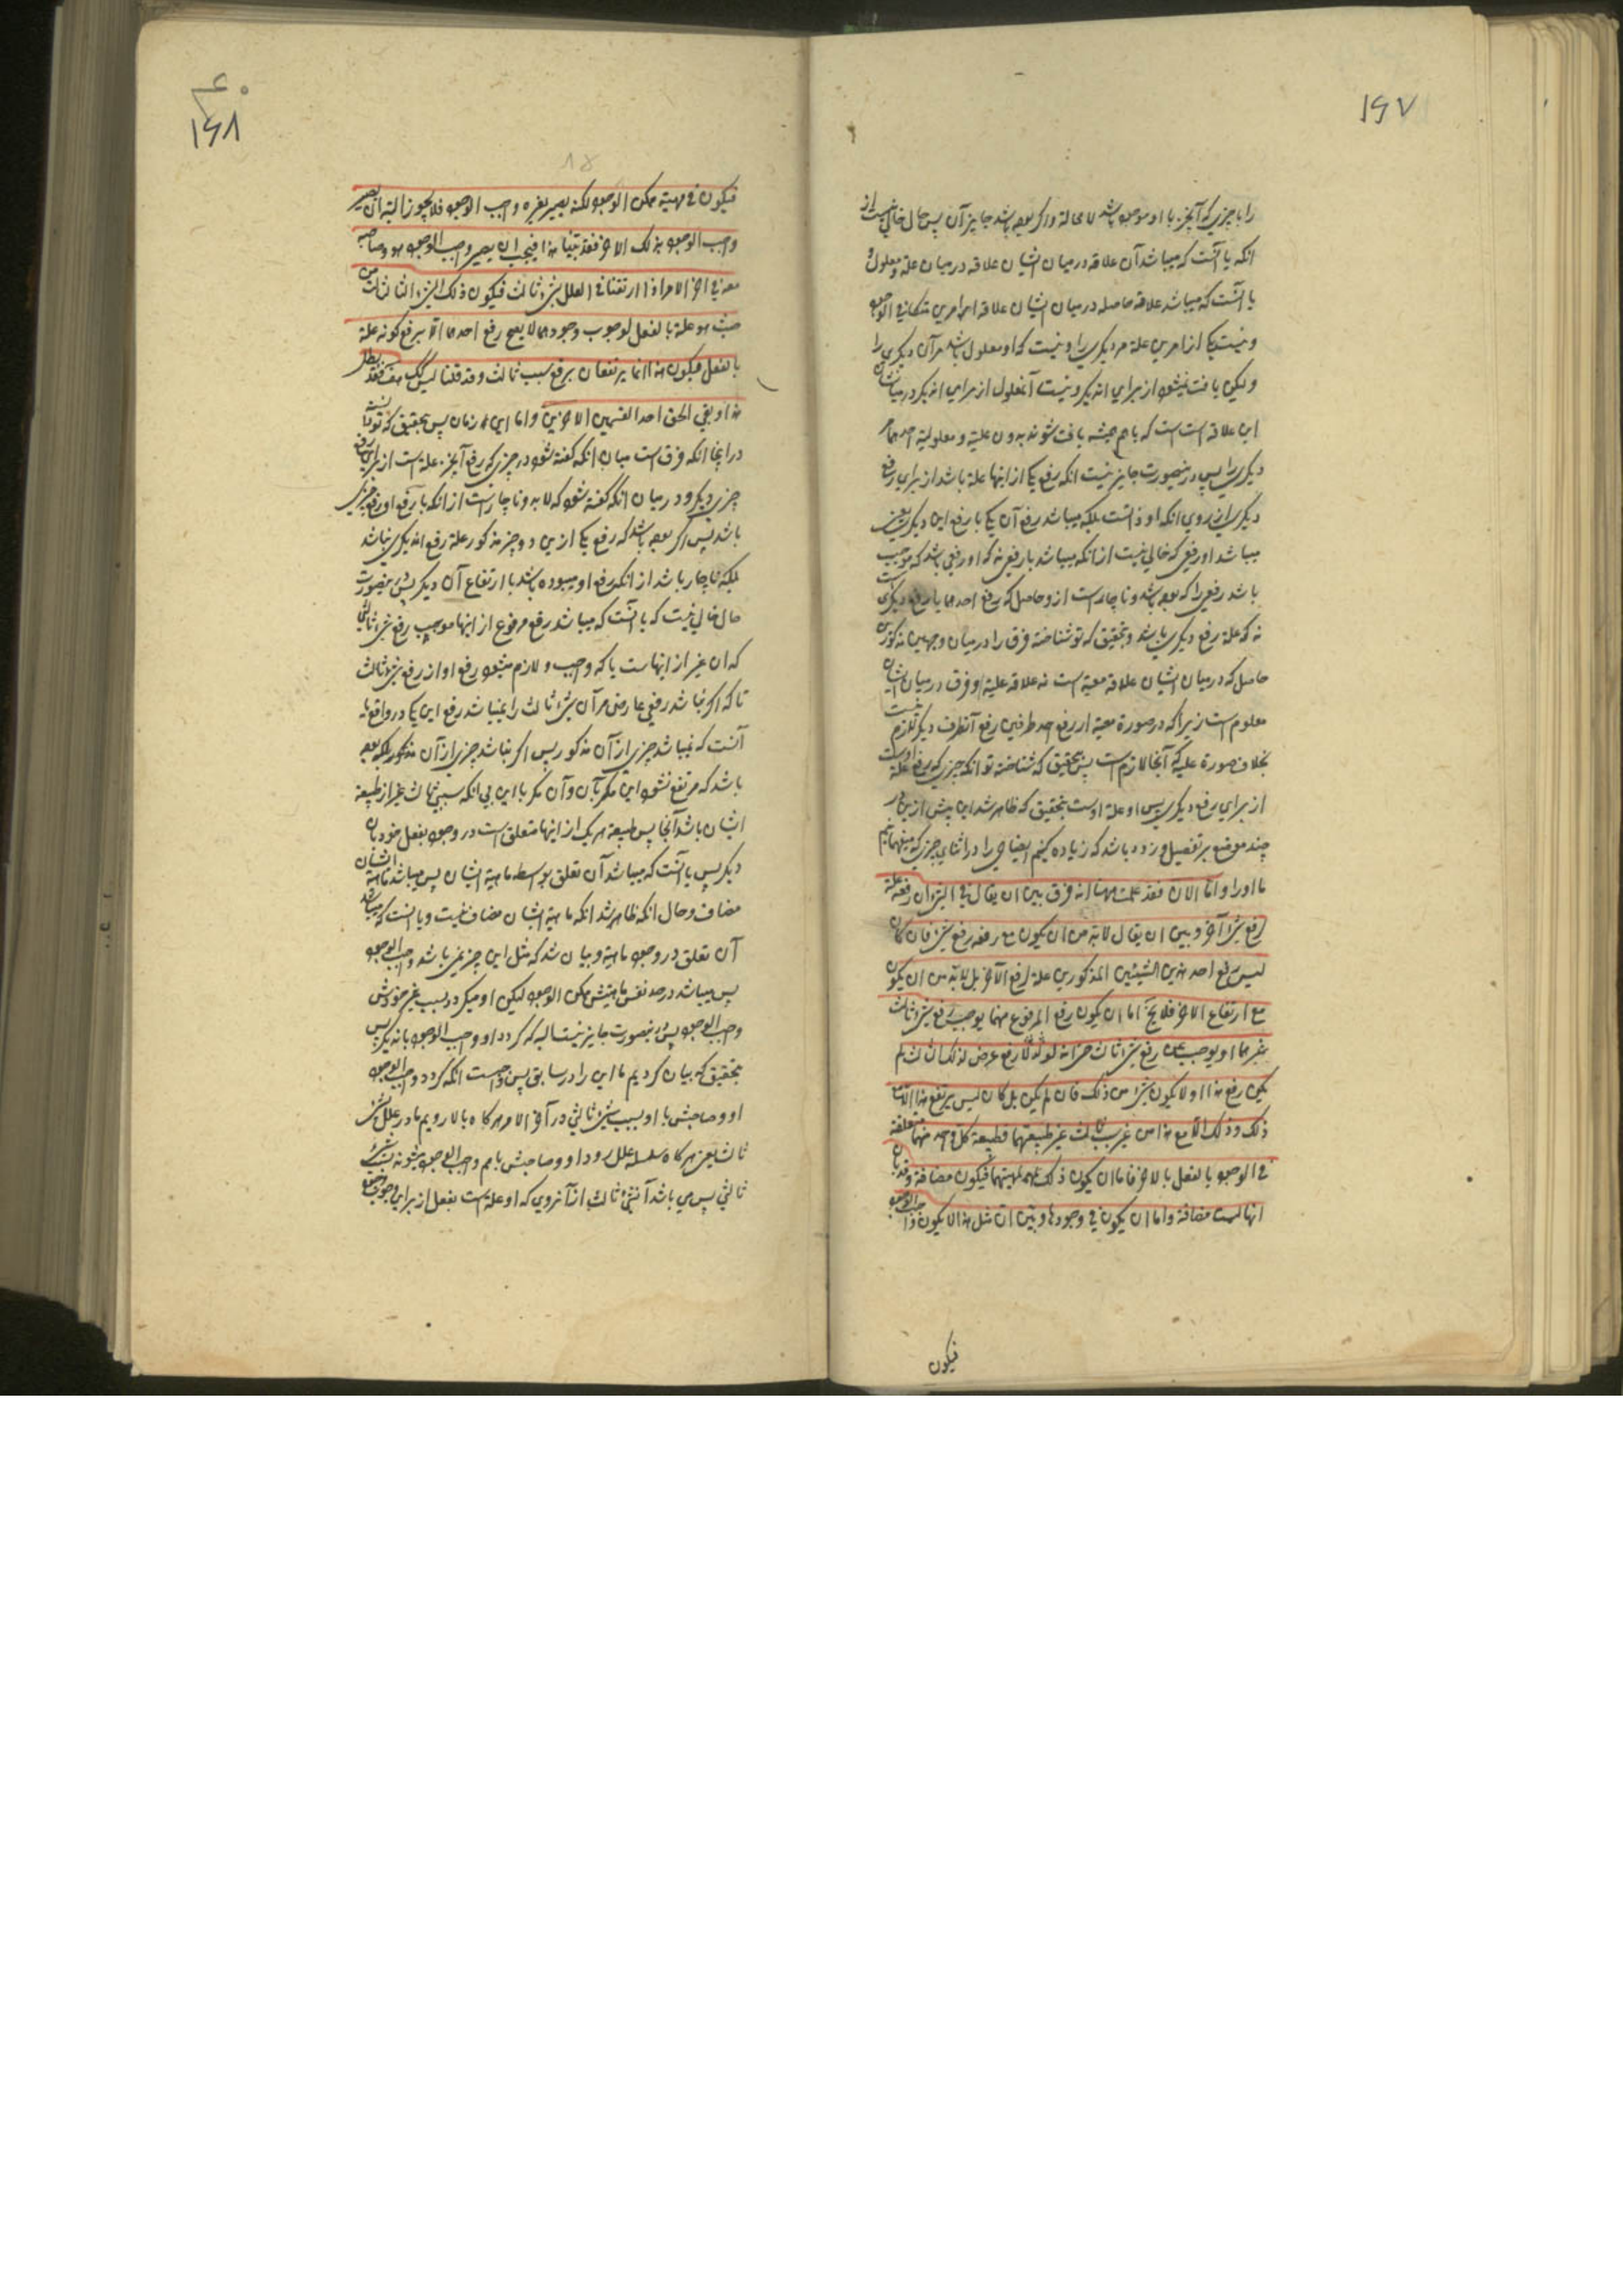 ۱۶۷
را با چیزی که آنچیز با او موجود باشد لا محالة واگر بوده باشد جایز آن پس حال خالی نیست از
انکه یا آنست که میباشد آن علاقه در میان ایشان علاقه در میان علة و معلول و
یا آنست که میباشد علاقه حاصله در میان ایشان علاقه امرین متکافی الوجود
و نیست یکی از امرین علة مر دیگری را و نیست که او معلول باشد مر آن دیگری را
و لیکن یافت نمیشود از برای اندیکر و نیست آنمعلول از برای اندیکر و در میان ایشان
این علاقه است است که باهم همیشه یافت شوند بدون علیة و معلولیة احدهما مر
دیگری را پس درینصورت جایز نیست انکه رفع یکی از اینها علة باشد از برای رفع
دیگری از روی انکه او ذاتست بلکه میباشد رفع آن یکی با رفع این دیگری یعنی
میباشد او رفعی که خالی نیست از انکه میباشد با رفعی نه که او رفعی باشد که موجب
باشد رفعی را که بوده باشد و ناچار است از و حاصل که رفع احدهما با رفع دیگری است
نه که علة رفع دیگری باشد و بتحقیق که تو شناخته فرق را در میان وجهین مذکورین
حاصل که در میان ایشان علاقه معیة است نه علاقه علیة و فرق در میان ایشان
معلوم است زیرا که در صورة معیة از رفع احد طرفین رفع آنطرف دیگر لازم نیست
بخلاف صورة علیه که آنجا لازم است پس بتحقیق که شناخته تو انکه چیزی که رفع او علة است
از برای رفع دیگری پس او علة اوست بتحقیق که ظاهر شد این پیش ازین در
چند موضع بر تفصیل و زود باشد که زیاده کنیم ایضاحی را در اثنای چیزی که میفهمانیم
ما او را و اما الان فقد علمت ههنا انه فرق بین ان یقال فی الشئ ان رفعه علة
لرفع شئ آخر و بین ان یقال لابد من ان یکون مع رفعه رفع شئ فان کان
لیس رفع احد هذین الشیئین المذکورین علة لرفع الآخر بل لابد من ان یکون
مع ارتفاع الاخر فلا یخ اما ان یکون رفع المرفوع منهما یوجب رفع شئ ثالث
غیرهما او یوجب عن رفع شئ ثالث حتی انه لولا رفع عرض لذلک الثالث لم
یکن رفع هذا او لا یکون شئ من ذلک فان لم یکن بل کان لیس یرتفع هذا الا مع
ذلک و ذلک الا مع هذا من غیر سبب ثالث غیر طبیعتهما فطبیعة کل واحد منهما متعلقة
فی الوجود بالفعل بالاخر فاما ان یکون ذلک لمهیتهما فیکون مضافة و قد بان
انها لیست مضافة و اما ان یکون فی وجودها و بین ان مثل هذا لا یکون واجب الوجود
فیکون
۱۶۸
فیکون فی مهیته ممکن الوجود لکنه یصیر بغیره واجب الوجود فلا یجوز البته ان یصیر
واجب الوجود بذلک الاخر فقد بینا هذا فیجب ان یصیر واجب الوجود هو و صاحبه
معه فی اخر الامر اذا ارتقینا فی العلل بشئ ثالث فیکون ذلک الشئ الثالث من
حیث هو علة بالفعل لوجوب وجودهما لا یصح رفع احدهما الا برفع کونه علة
بالفعل فیکون هذا انما یرتفعان برفع سبب ثالث و قد قلنا لیس کک هف فقد بطل
هذا و بقی الحق احد القسمین الاخرین و اما این زمان پس بتحقیق که تو دانسته
در اینجا انکه فرق است میان انکه گفته شود در چیزی که رفع آنچیز علة است از برای رفع
چیزی دیگر و در میان انکه گفته شود که لابد و ناچار است از انکه با رفع او رفع چیزی
باشد پس اگر بوده باشد که رفع یکی ازین دو چیز مذکور علة رفع اندیگری نباشد
بلکه ناچار باشد از انکه رفع او میبوده باشد با ارتفاع آن دیگر پس درینصورت
حال خالی نیست که یا آنست که میباشد رفع مرفوع از اینها موجب رفع شئ ثالثی
که ان غیر از اینهاست یا که واجب و لازم میشود رفع او از رفع شئ ثالث
تا که اگر نباشد رفعی عارض مر آن شئ ثالث را نمیباشد رفع این یکی در واقع یا
آنست که نمیباشد چیزی از آن مذکور پس اگر نباشد چیزی از آن مذکور بلکه بوده
باشد که مرتفع نشود این مگر بآن و آن مگر با این بی انکه سببی ثالث غیر از طبیعة
ایشان باشد آنجا پس طبیعة هر یک از اینها متعلق است در وجود بفعل خود بان
دیگر پس یا آنست که میباشد آن تعلق بواسطه ماهیة ایشان پس میباشد ماهیة ایشان
مضاف و حال انکه ظاهر شد انکه ماهیة ایشان مضاف نیست و یا انست که میباشد
آن تعلق در وجود ماهیة و بیان شد که مثل این چیز نمی باشد واجب الوجود
پس میباشد در حد نفس ماهیتش ممکن الوجود لیکن او میگردد بسبب غیر خودش
واجب الوجود پس درینصورت جایز نیست البه که گردد او واجب الوجود باندیگر پس
بتحقیق که بیان کردیم ما این را در سابق پس واجبست انکه گردد واجب الوجود
او و صاحبش با او بسبب شئ ثالثی در آخر الامر هرگاه بالا رویم ما در علل بشئ
ثالث یعنی هرگاه سلسله علل رود او و صاحبش باهم واجب الوجود میشوند بسبب شئ
ثالثی پس می باشد آنشئ ثالث از آنروی که او علة است بفعل از برای وجوب وجود